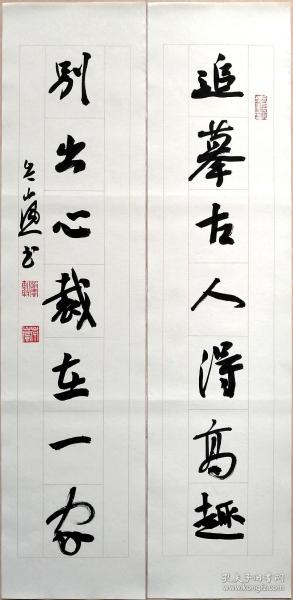 追摹古人得高趣
别出心裁在一家
孔夫子旧书网